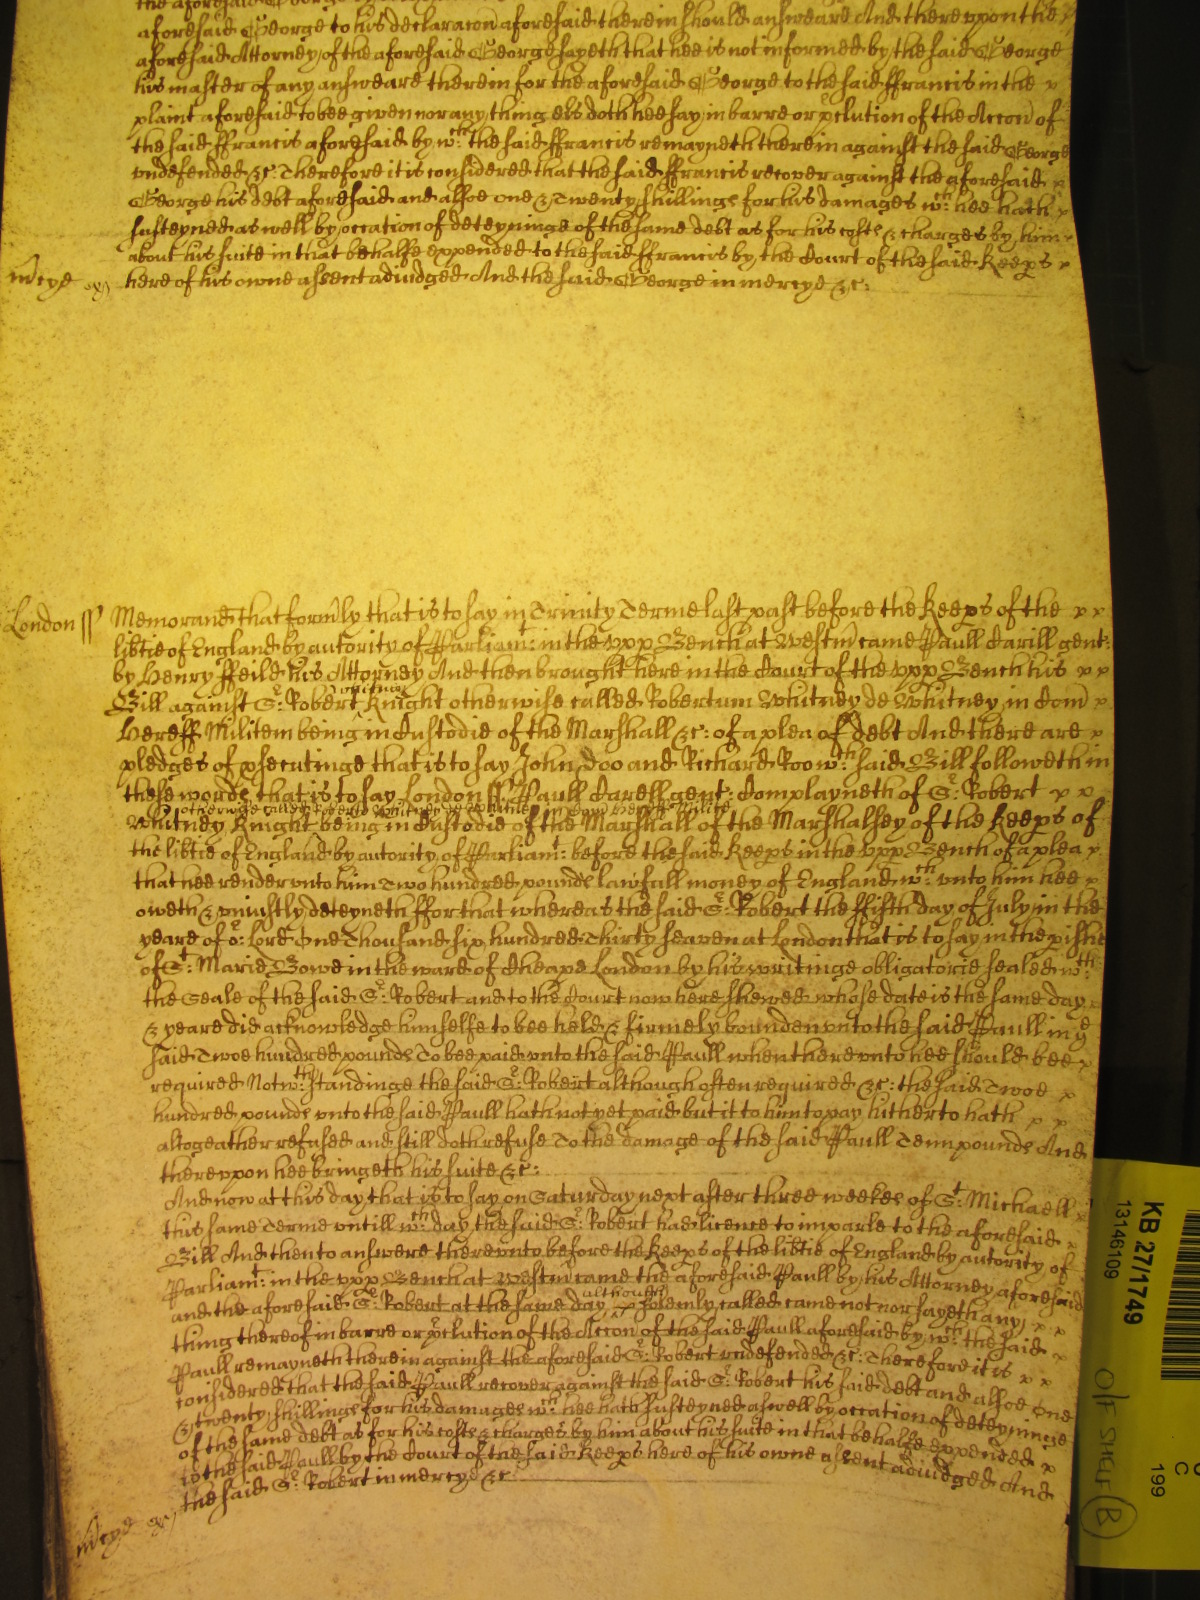 the aforesaid George
aforesaid George to his declaracon aforesaid therein should answeare And thereuppon the
aforesaid Attorney of the aforesaid George sayeth that hee is not informed by the said George
his master of any answeare therein for the aforesaid George to the said ffrancis in the x
plaint aforesaid to bee given nor any thing els doth hee say in barre or pclution of the Accon of
the said ffrancis aforesaid by wch: the said ffrancis remayneth therein against the said George
undefended &c: Therefore it is considered that the said ffrancis recover against the aforesaid x
George his debt aforesaid and alsoe one & Twenty shillings for his damages wch: hee hath x
susteyned as well by occation of deteyninge of the same debt as for his costs & charges by him x
about his suite in that behalfe expended to the said ffrancis by the Court of the said Keeps x
mcye here of his owne assent adiudged And the said George in mercye &c:
London ss Memorand that formly that is to say in Trinity Terme last past before the Keeps of the x x
libtie of England by autority of Parliamt: in the upp Bench at Westm came Paull Darill gent:
by Henry ffeild his Attorney And then brought here in the Court of the upp Bench his x x
Bill against Sr: Robert Whitney Knight otherwise called Robertum Whitney de Whitney in Com x
Hereff Militem being in Custodie of the Marshall &c: of a plea of debt And there are x
pledges of psecutinge that is to say John Doo and Richard Roo wch said Bill followeth in
these words that is to say London ss Paull Darell gent: Complayneth of Sr: Robert x x
otherwise called Robertu Whitney de Whitney in Com Hereff Milite
Whitney Knight being in Custodie of the Marshall of the Marshalsey of the Keeps of
the libtie of England by autority of Parliamt: before the said Keeps in the upp Bench of a plea x
that hee render unto him Two hundred pounds lawfull money of England wch: unto him hee x
oweth & uniustly deteyneth ffor that whereas the said Sr: Robert the ffifth day of July in the
yeare of or: Lord One Thousand six hundred Thirty seaven at London that is to say in the pishe
of St: Marie Bowe in the ward of Cheape London by his writinge obligatorie sealed wth:
the Seale of the said Sr: Robert and to the Court now here shewed whose date is the same day
& yeare did acknowledge himselfe to bee held & firmely bounden unto the said Paull in ye
said Twoe hundred pounds To bee paid unto the said Paull when thereunto hee should bee x
required Notwthstandinge the said Sr: Robert although often required &c: the said Twoe x
hundred pounds unto the said Paull hath not yet paid but it to him to pay hitherto hath x x
altogeather refused and still doth refuse To the damage of the said Paull Tenn pounds And
thereuppon hee bringeth his suite &c:
And now at this day that is to say on Saturday next after three weekes of St: Michaell x
this same Terme untill wch: day the said Sr: Robert had licence to imparle to the aforesaid x
Bill And then to answere thereunto before the Keeps of the libtie of England by autority of
Parliamt: in the upp Bench at Westm came the aforesaid Paull by his Attorney aforesaid
and the aforesaid Sr: Robert at the same day although solemly called came not nor sayeth any x x
thing thereof in barre or pclution of the Accon of the said Paull aforesaid by wch: the said x
Paull remayneth therein against the aforesaid Sr: Robert undefended &c: Therefore it is x x
considered that the said Paull recover against the said Sr: Robert his said debt and alsoe one
& twenty shillings for his damages wch: hee hath susteyned aswell by occation of deteyninge
of the same debt as for his costs & charges by him about his suite in that behalfe expended x
to the said Paull by the Court of the said Keeps here of his owne assent adiudged And
the said Sr: Robert in mercye &c:
mcye
KB 27/1749
13146109
C
199
O/F SHELF B